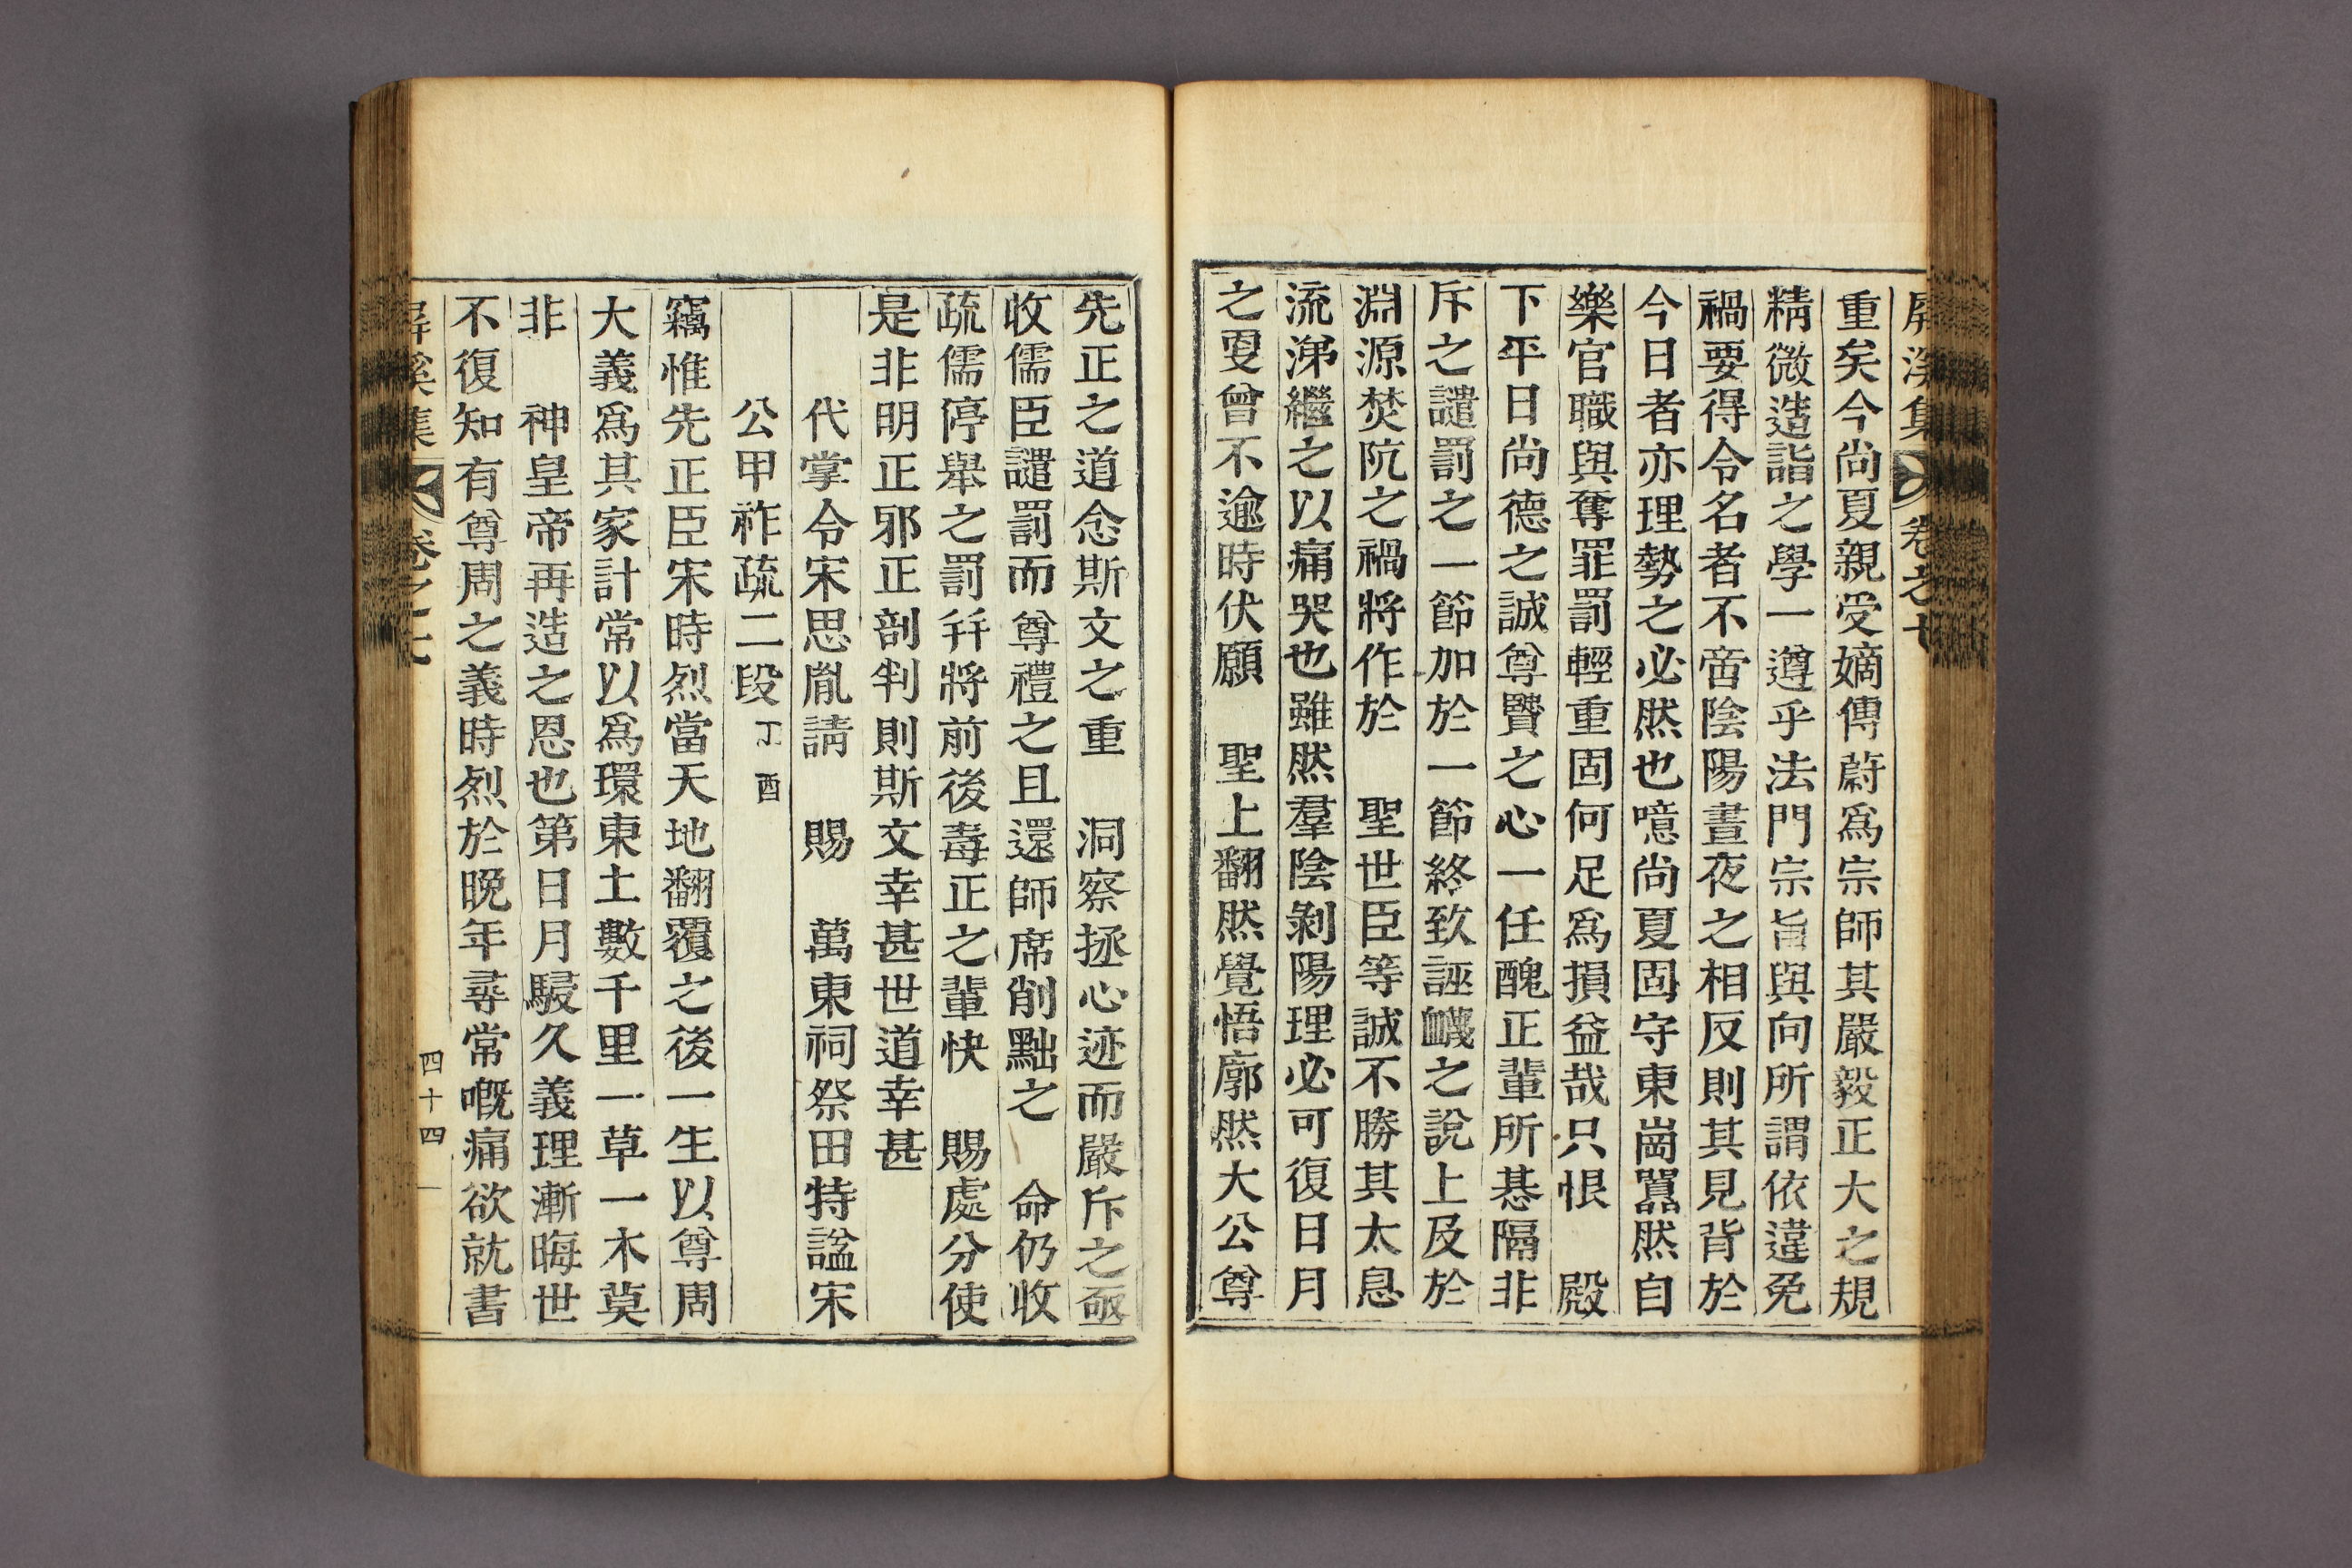 屛溪集 卷之七
重矣今尙夏親受嫡傳蔚爲宗師其嚴毅正大之規
精微造詣之學一遵乎法門宗旨與向所謂依違免
禍要得令名者不啻陰陽晝夜之相反則其見背於
今日者亦理勢之必然也噫尙夏固守東崗囂然自
樂官職與奪罪罰輕重固何足爲損益哉只恨 殿
下平日尙德之誠尊賢之心一任醜正輩所惎隔非
斥之譴罰之一節加於一節終致誣衊之說上及於
淵源焚阬之禍將作於 聖世臣等誠不勝其太息
流涕繼之以痛哭也雖然羣陰剝陽理必可復日月
之更曾不逾時伏願 聖上翻然覺悟廓然大公尊
先正之道念斯文之重 洞察拯心迹而嚴斥之亟
收儒臣譴罰而尊禮之且還師席削黜之 命仍收
疏儒停擧之罰幷將前後毒正之輩快 賜處分使
是非明正邪正剖判則斯文幸甚世道幸甚
代掌令宋思胤請 賜 萬東祠祭田特謚宋
公甲祚疏二段 丁酉
竊惟先正臣宋時烈當天地翻覆之後一生以尊周
大義爲其家計常以爲環東土數千里一草一木莫
非 神皇帝再造之恩也第日月駸久義理漸晦世
不復知有尊周之義時烈於晩年尋常嘅痛欲就書
屛溪集 卷之七 四十四